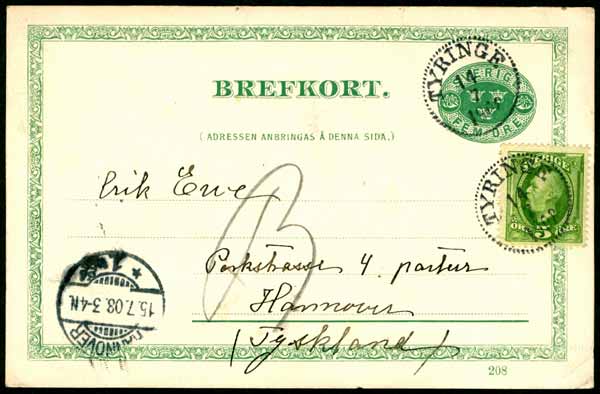 TYRINGE
14
7
SVERIGE
FEM ÖRE
BREFKORT.
( ADRESSEN ANBRINGAS Å DENNA SIDA. )
TYRINGE
14
SVERIGE
5 ÖRE
Erik Erwe
Parkstrasse 4. partur
Hannover
( Tyskland )
15.7.08.3-4N.
HANNOVER
208